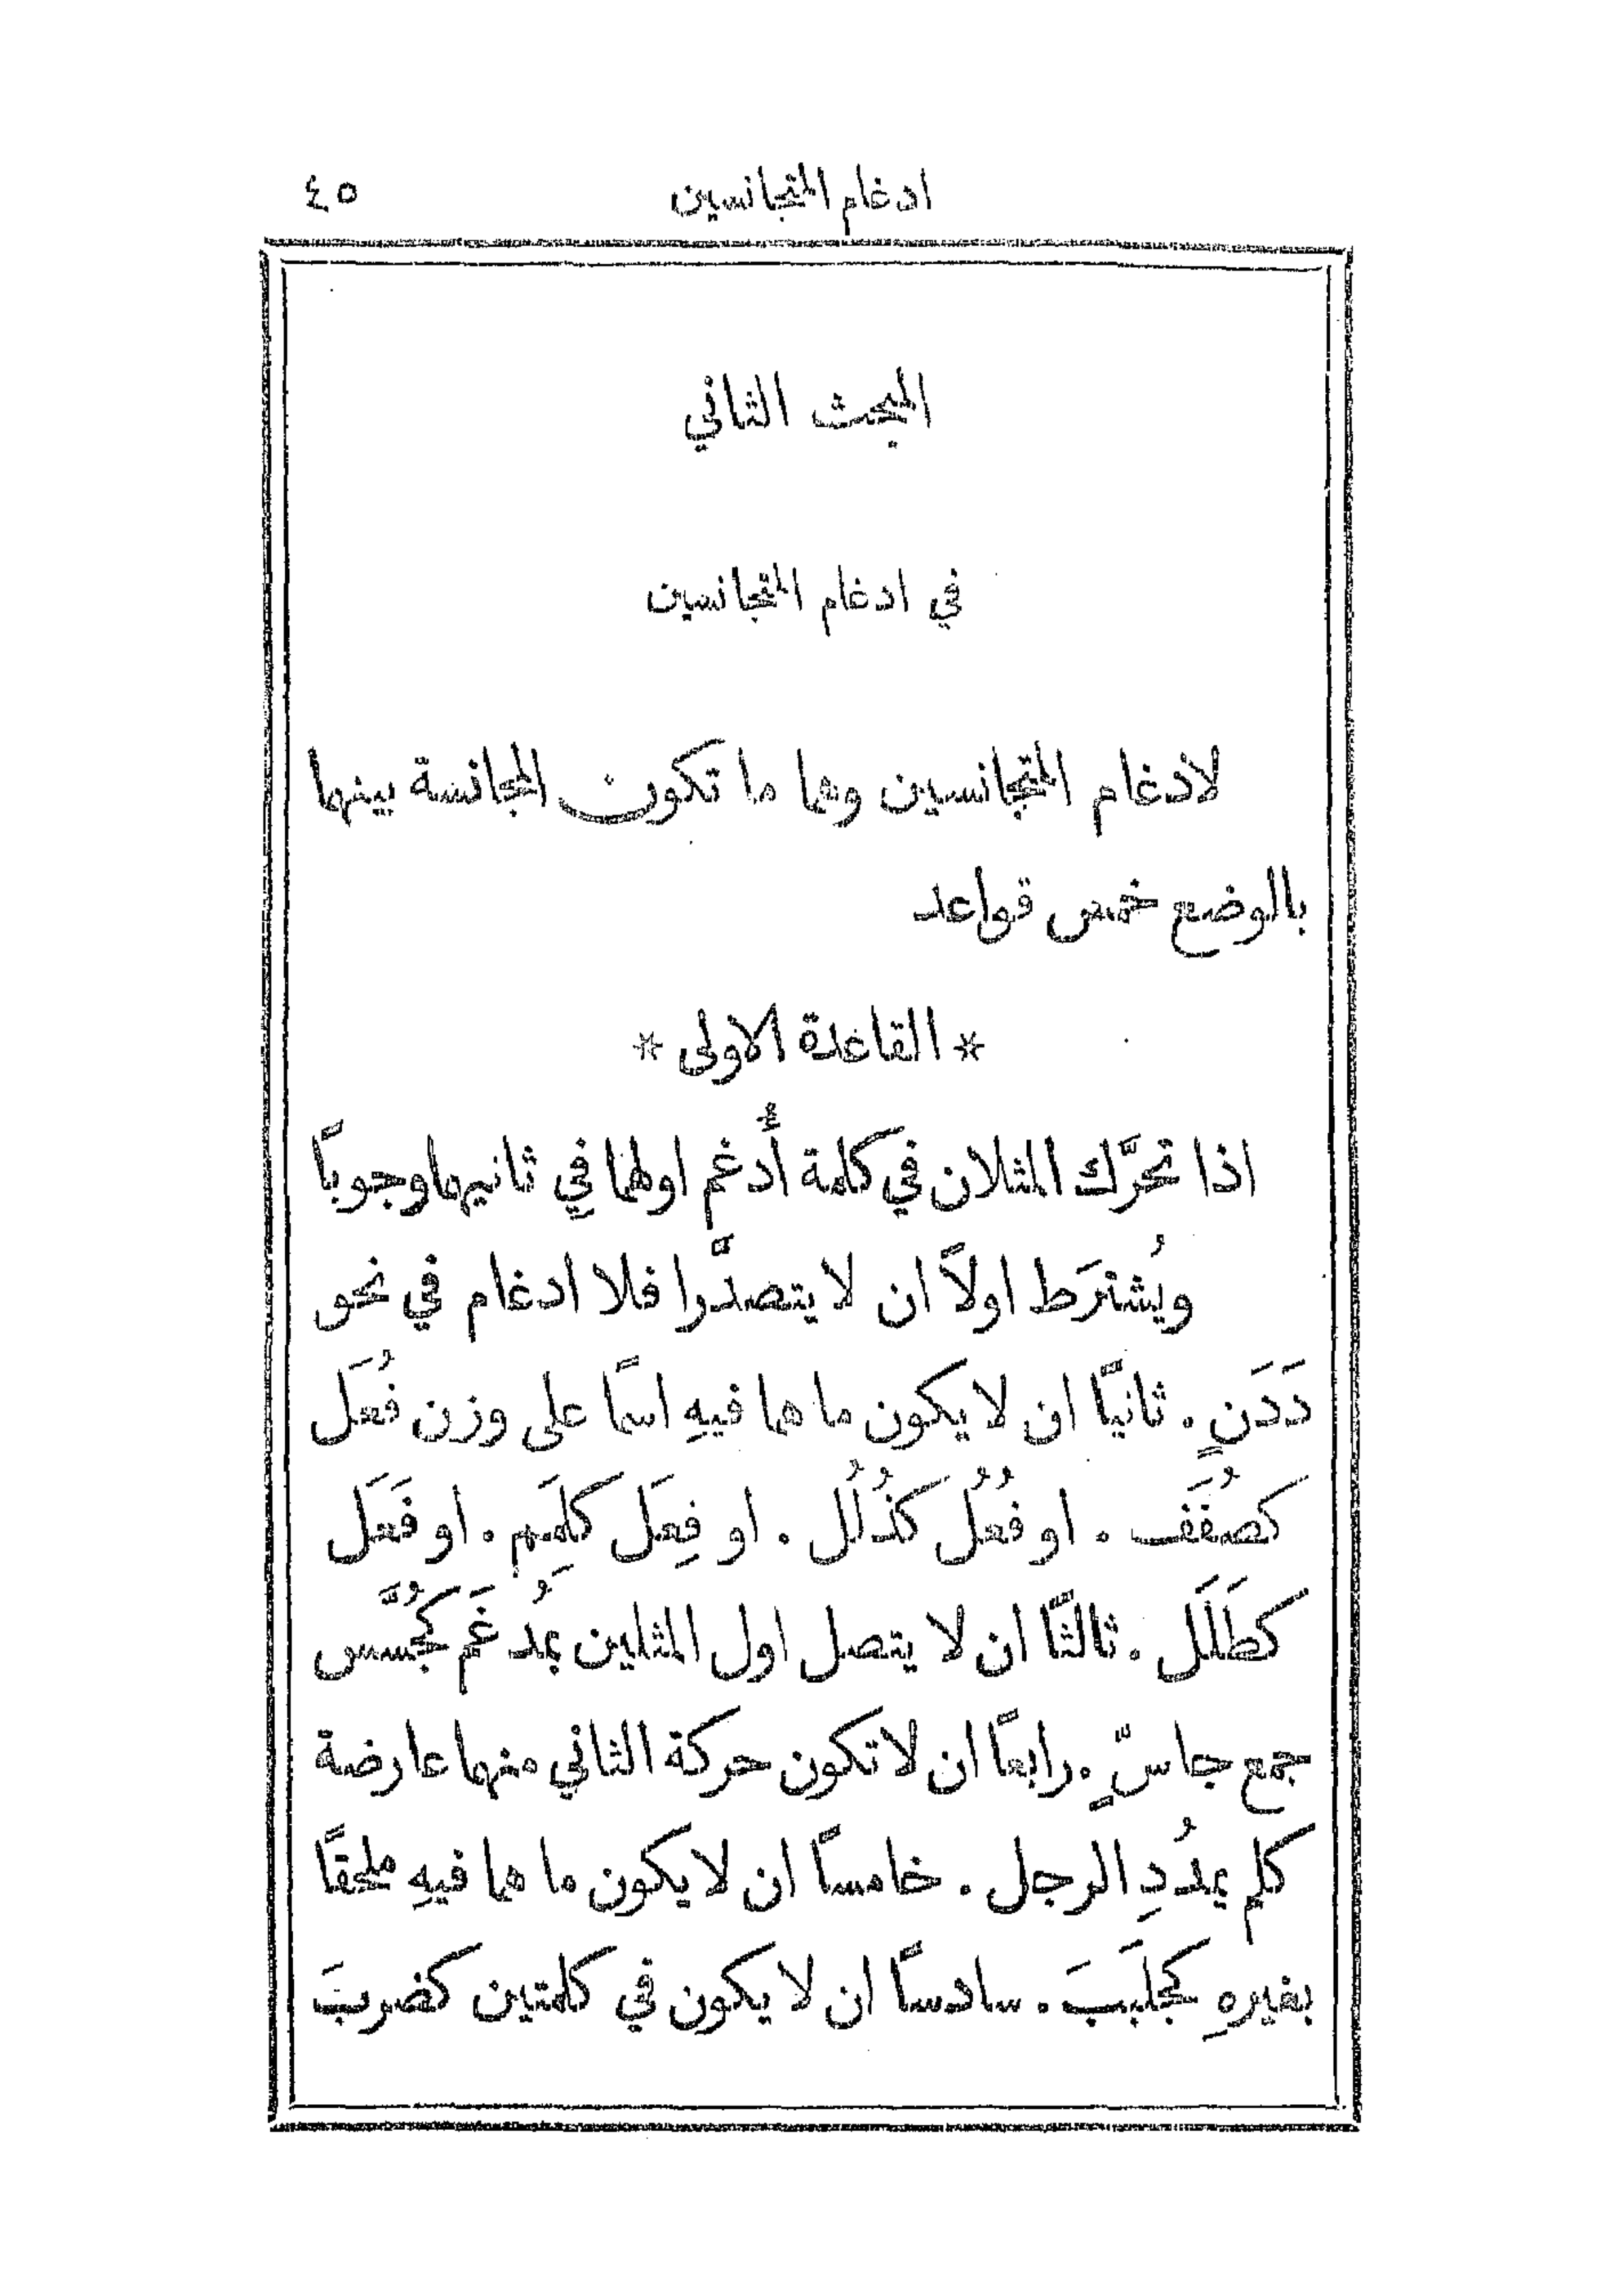 ادغام المتجانسين ٤٥
المبحث الثاني
في ادغام المتجانسين
لادغام المتجانسين وهما ما تكون المجانسة بينهما
بالوضع خمس قواعد
* القاعدة الاولى *
اذا تحرَّك المثلان في كلمة أُدغم اولهما في ثانيهما وجوباً
ويُشترَط اولاً ان لا يتصدَّرا فلا ادغام في نحو
دَدَنٍ . ثانيًا ان لا يكون ما هما فيهِ اسمًا على وزن فُعَل
كصُفَف . او فُعُل كذُلُل . او فِعَل كلِمَم . او فَعَل
كطَلَل . ثالثًا ان لا يتصل اول المثلين بمُدغَم كجُسَّس
جمع جاسّ . رابعًا ان لا تكون حركة الثاني منهما عارضة
كلم يمدُدِ الرجل . خامسًا ان لا يكون ما هما فيهِ ملحقًا
بغيرهِ كجلبَبَ . سادسًا ان لا يكون في كلمتين كضربَ